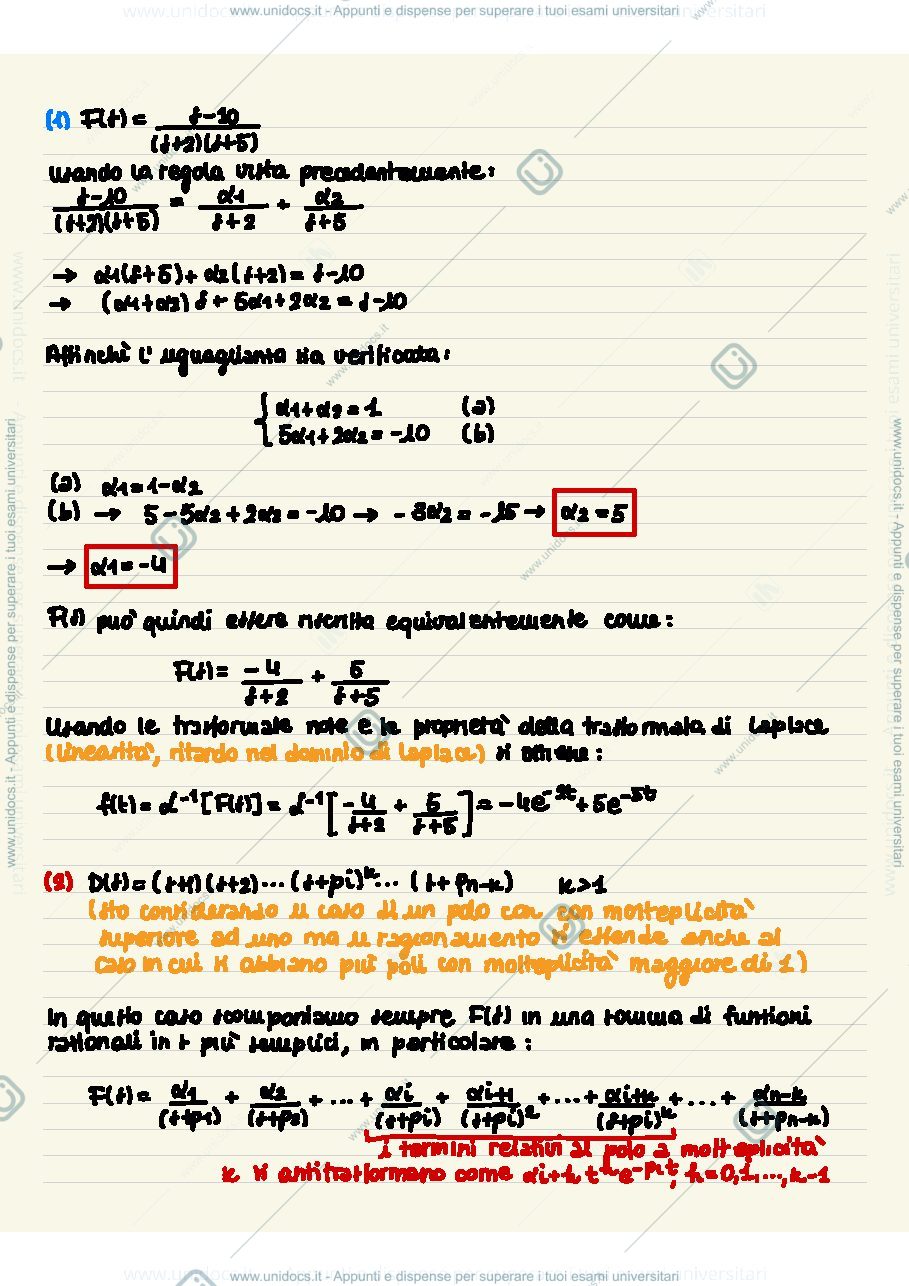 www.unidocs.it - Appunti e dispense per superare i tuoi esami universitari
(1) F(s) = s-10 / (s+2)(s+5)
Usando la regola vista precedentemente:
s-10 / (s+2)(s+5) = α1 / s+2 + α2 / s+5
→ α1(s+5) + α2(s+2) = s-10
→ (α1+α2) s + 5α1+2α2 = s-10
Affinché l'uguaglianza sia verificata:
{ α1+α2 = 1 (a)
5α1+2α2 = -10 (b)
(a) α1 = 1-α2
(b) → 5-5α2+2α2 = -10 → -3α2 = -15 → α2 = 5
→ α1 = -4
F(s) può quindi essere riscritta equivalentemente come:
F(s) = -4 / s+2 + 5 / s+5
Usando le trasformate note e le proprietà della trasformata di Laplace
(linearità, ritardo nel dominio di Laplace) si ottiene:
f(t) = L⁻¹[F(s)] = L⁻¹[-4 / s+2 + 5 / s+5] = -4e^-2t + 5e^-5t
(2) D(s) = (s+1)(s+2)...(s+pi)^k...(s+pn-k) k>1
(sto considerando il caso di un polo con con molteplicità
superiore ad uno ma il ragionamento si estende anche al
caso in cui si abbiano più poli con molteplicità maggiore di 1)
In questo caso scomponiamo sempre F(s) in una somma di funzioni
razionali in s più semplici, in particolare:
F(s) = α1 / (s+p1) + α2 / (s+p2) + ... + αi / (s+pi) + αi+1 / (s+pi)^2 + ... + αi+k / (s+pi)^k + ... + αn-k / (s+pn-k)
i termini relativi al polo a molteplicità
k si antitrasformano come αi+h t^h e^-pit, h=0,1,...,k-1
www.unidocs.it - Appunti e dispense per superare i tuoi esami universitari